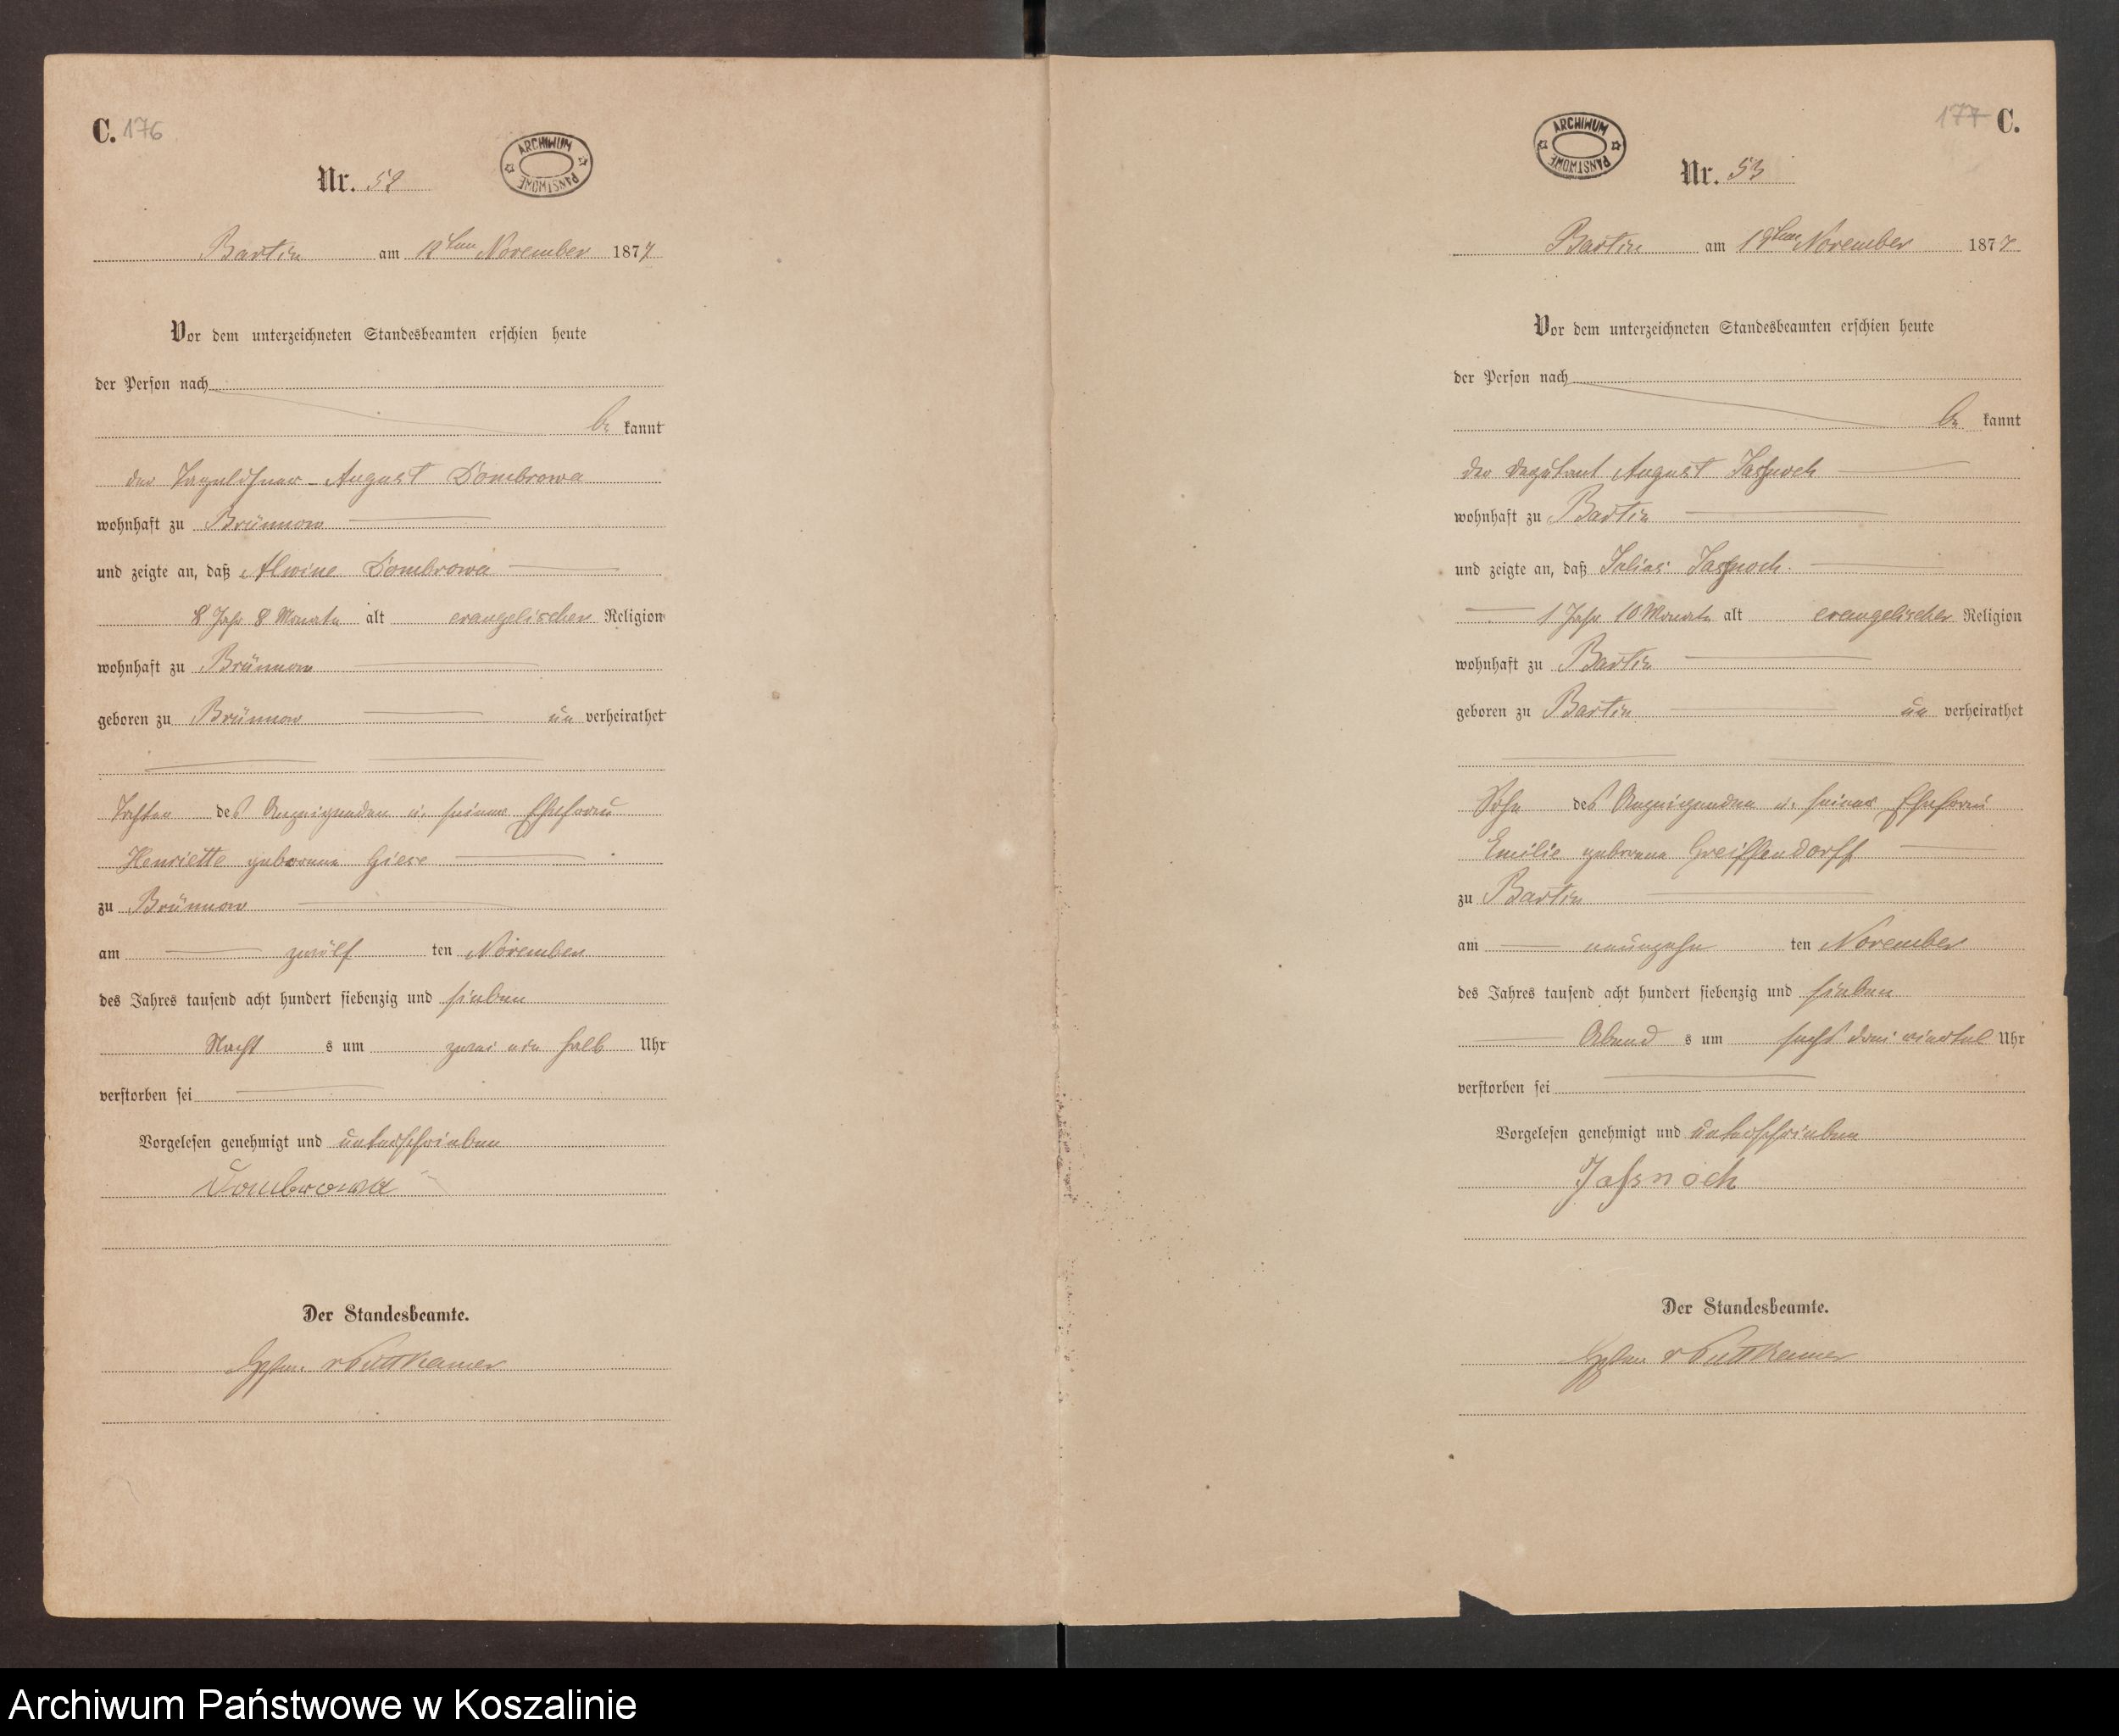 C. 176
ARCHIWUM PAŃSTWOWE
Nr. 52
Bartin am 12ten November 1877
Vor dem unterzeichneten Standesbeamten erschien heute
der Person nach
be kannt
der Tagelöhner August Dombrowa
wohnhaft zu Brünnow
und zeigte an, daß Alwine Dombrowa
8 Jahr 8 Monate alt evangelischer Religion
wohnhaft zu Brünnow
geboren zu Brünnow un verheirathet
Tochter des Anzeigenden u. seiner Ehefrau
Henriette geborene Giese
zu Brünnow
am zwölf ten November
des Jahres tausend acht hundert siebenzig und sieben
Nacht s um zwei ein halb Uhr
verstorben sei
Vorgelesen genehmigt und unterschrieben
Dombrowa
Der Standesbeamte.
v Puttkamer
177 C.
ARCHIWUM PAŃSTWOWE
Nr. 53
Bartin am November 1877
Vor dem unterzeichneten Standesbeamten erschien heute
der Person nach
be kannt
der Deputant August Jassnoch
wohnhaft zu Bartin
und zeigte an, daß Jassnoch
1 Jahr 10 Monate alt evangelischer Religion
wohnhaft zu Bartin
geboren zu Bartin un verheirathet
Sohn des Anzeigenden u. seiner Ehefrau
Emilie geborene Greiffendorff
zu Bartin
am neunzehn ten November
des Jahres tausend acht hundert siebenzig und sieben
Abend s um sechs drei viertel Uhr
verstorben sei
Vorgelesen genehmigt und unterschrieben
Jassnoch
Der Standesbeamte.
v Puttkamer
Archiwum Państwowe w Koszalinie